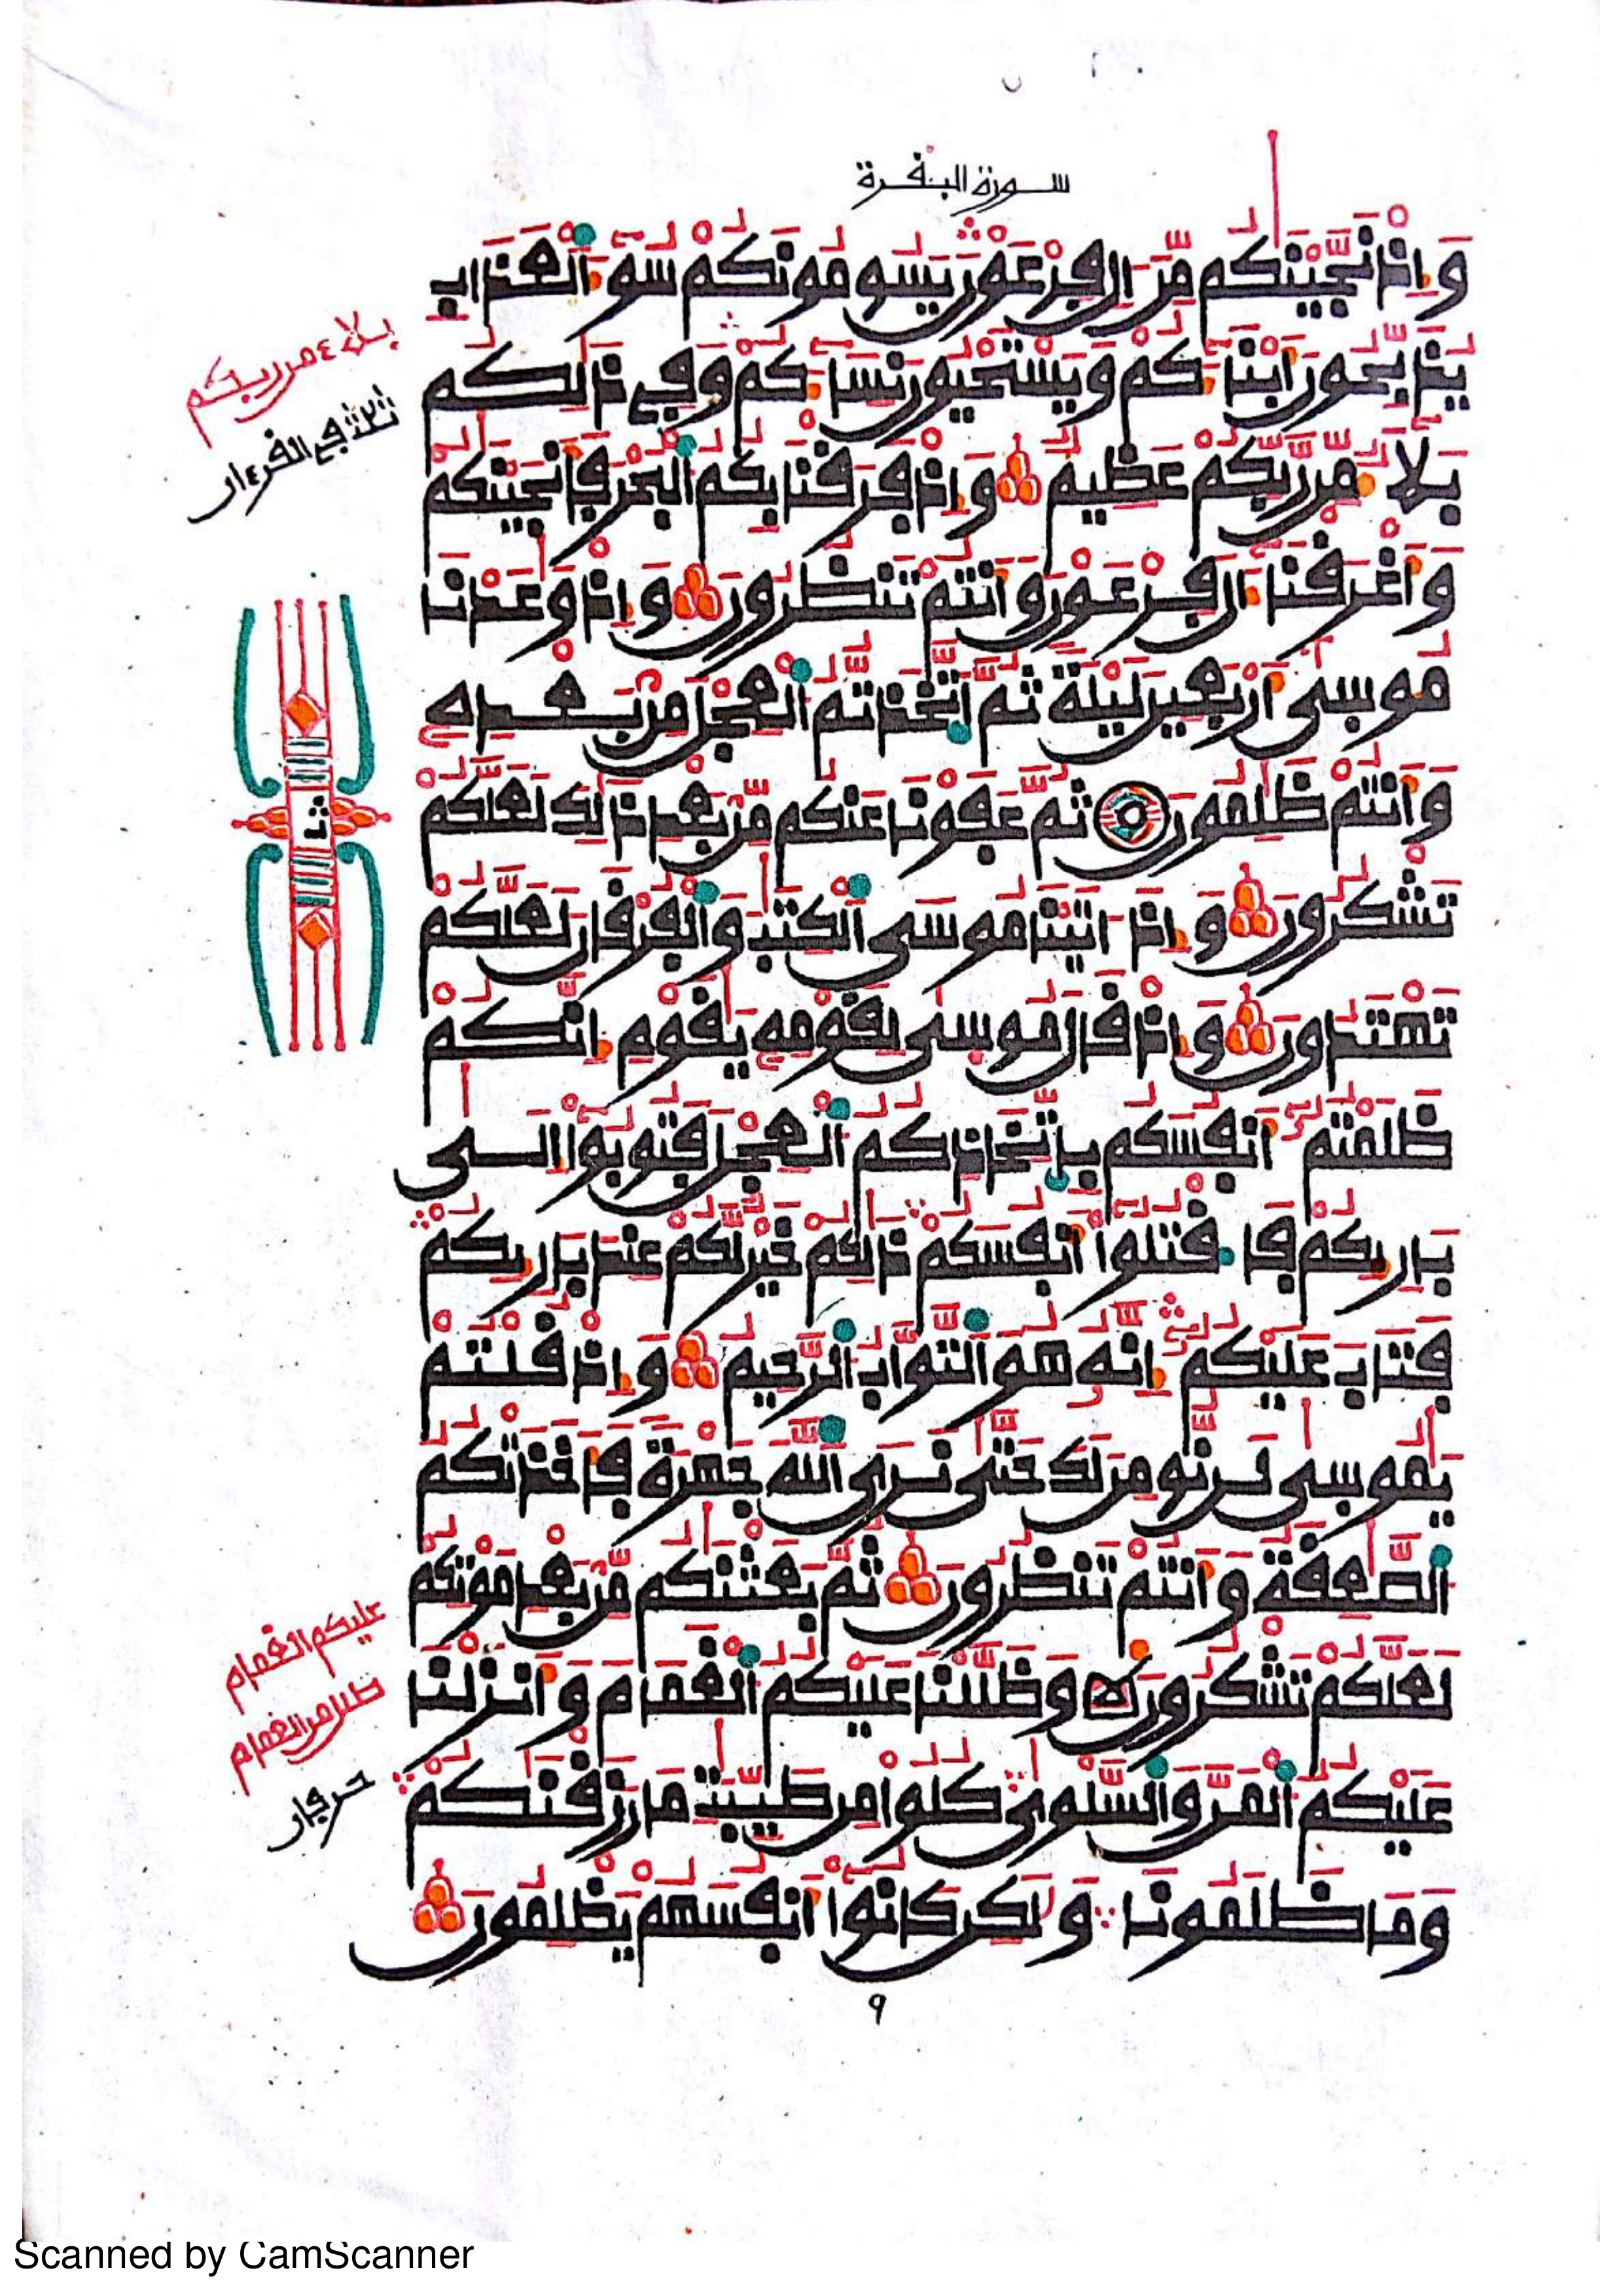 سورة البقرة
وَإِذْ نَجَّيْنَٰكُم مِّنَ ءَالِ فِرْعَوْنَ يَسُومُونَكُمْ سُوٓءَ ٱلْعَذَابِ
يُذَبِّحُونَ أَبْنَآءَكُمْ وَيَسْتَحْيُونَ نِسَآءَكُمْ وَفِي ذَٰلِكُم
بَلَآءٌ مِّن رَّبِّكُمْ عَظِيمٌ وَإِذْ فَرَقْنَا بِكُمُ ٱلْبَحْرَ فَأَنجَيْنَٰكُمْ
وَأَغْرَقْنَآ ءَالَ فِرْعَوْنَ وَأَنتُمْ تَنظُرُونَ وَإِذْ وَٰعَدْنَا
مُوسَىٰ أَرْبَعِينَ لَيْلَةً ثُمَّ ٱتَّخَذتُّمُ ٱلْعِجْلَ مِنۢ بَعْدِهِ
وَأَنتُمْ ظَٰلِمُونَ ثُمَّ عَفَوْنَا عَنكُم مِّنۢ بَعْدِ ذَٰلِكَ لَعَلَّكُمْ
تَشْكُرُونَ وَإِذْ ءَاتَيْنَا مُوسَى ٱلْكِتَٰبَ وَٱلْفُرْقَانَ لَعَلَّكُمْ
تَهْتَدُونَ وَإِذْ قَالَ مُوسَىٰ لِقَوْمِهِ يَٰقَوْمِ إِنَّكُمْ
ظَلَمْتُمُۥٓ أَنفُسَكُم بِٱتِّخَاذِكُمُ ٱلْعِجْلَ فَتُوبُوٓا إِلَىٰ
بَارِئِكُمْ فَٱقْتُلُوٓا أَنفُسَكُمْ ذَٰلِكُمْ خَيْرٌ لَّكُمْ عِندَ بَارِئِكُمْ
فَتَابَ عَلَيْكُمُۥٓ إِنَّهُۥ هُوَ ٱلتَّوَّابُ ٱلرَّحِيمُ وَإِذْ قُلْتُمْ
يَٰمُوسَىٰ لَن نُّومِنَ لَكَ حَتَّىٰ نَرَى ٱللَّهَ جَهْرَةً فَأَخَذَتْكُمُ
ٱلصَّٰعِقَةُ وَأَنتُمْ تَنظُرُونَ ثُمَّ بَعَثْنَٰكُم مِّنۢ بَعْدِ مَوْتِكُمْ
لَعَلَّكُمْ تَشْكُرُونَ وَظَلَّلْنَا عَلَيْكُمُ ٱلْغَمَامَ وَأَنزَلْنَا
عَلَيْكُمُ ٱلْمَنَّ وَٱلسَّلْوَىٰ كُلُوا مِن طَيِّبَٰتِ مَا رَزَقْنَٰكُمْ
وَمَا ظَلَمُونَا وَلَٰكِن كَانُوٓا أَنفُسَهُمْ يَظْلِمُونَ
بلاء من ربكم
ثلاثة في القرءان
ثمن
عليكم الغمام
ظلل من الغمام
حرفان
٩
Scanned by CamScanner